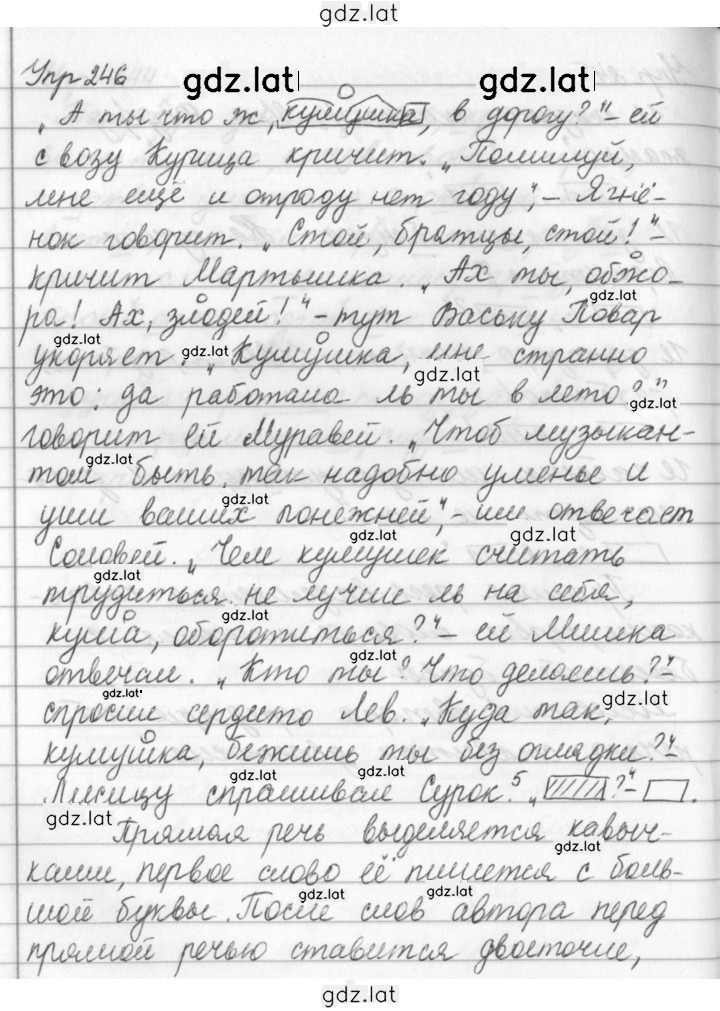 gdz.lat
Упр 246
gdz.lat gdz.lat
„А ты что ж, кумушка, в дорогу?" – ей
с возу Курица кричит. „Помилуй,
мне ещё и отроду нет году", – Ягнё-
нок говорит. „Стой, братцы, стой!" –
кричит Мартышка. „Ах ты, обжо-
gdz.lat
ра! Ах, злодей!" – тут Ваську Повар
gdz.lat
укоряет. „Кумушка, мне странно
gdz.lat
это: да работала ль ты в лето?"
gdz.lat
говорит ей Муравей. „Чтоб музыкан-
gdz.lat
том быть, так надобно уменье и
gdz.lat
уши ваших понежней", – им отвечает
gdz.lat gdz.lat
Соловей. „Чем кумушек считать
gdz.lat
трудиться, не лучше ль на себя,
gdz.lat
кума, оборотиться?" – ей Мишка
gdz.lat
отвечал. „Кто ты? Что делаешь?" –
gdz.lat
спросил сердито Лев. „Куда так,
gdz.lat
кумушка, бежишь ты без оглядки?" –
gdz.lat gdz.lat
Лисицу спрашивал Сурок.⁵ „ ?" – .
gdz.lat
Прямая речь выделяется кавыч-
ками, первое слово её пишется с боль-
gdz.lat gdz.lat
шой буквы. После слов автора перед
прямой речью ставится двоеточие,
gdz.lat